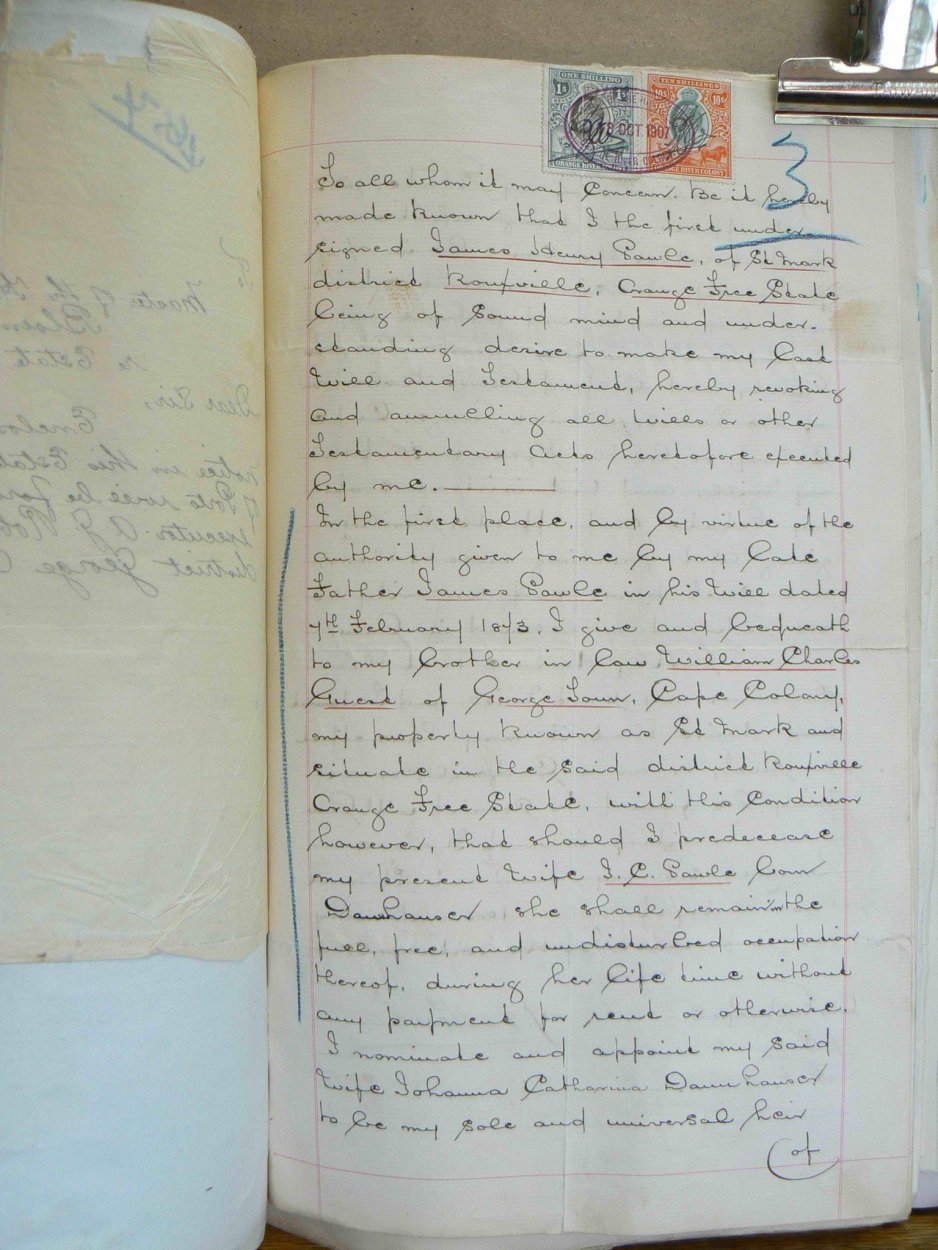 ONE SHILLING
1s 1s
ORANGE RIVER COLONY
TEN SHILLINGS
10s 10s
ORANGE RIVER COLONY
18 OCT. 1907
TAIWAN
3
To all whom it may Concern. Be it hereby
made known that I the first under
signed James Henry Sawle, of St Mark
district Rouxville, Orange Free State
being of sound mind and under-
standing desire to make my last
Will and Testament, hereby revoking
and annulling all wills or other
Testamentary Acts heretofore executed
by me.
In the first place, and by virtue of the
authority given to me by my late
Father James Sawle in his Will dated
7th February 1873, I give and bequeath
to my brother in law William Charles
Guest of George Town, Cape Colony,
my property known as St Mark and
situate in the said district Rouxville
Orange Free State, with this Condition
however, that should I predecease
my present Wife J. C. Sawle born
Dannhauser she shall remain in the
full, free, and undisturbed occupation
thereof, during her life time without
any payment for rent or otherwise.
I nominate and appoint my said
Wife Johanna Catharina Dannhauser
to be my sole and universal heir
of